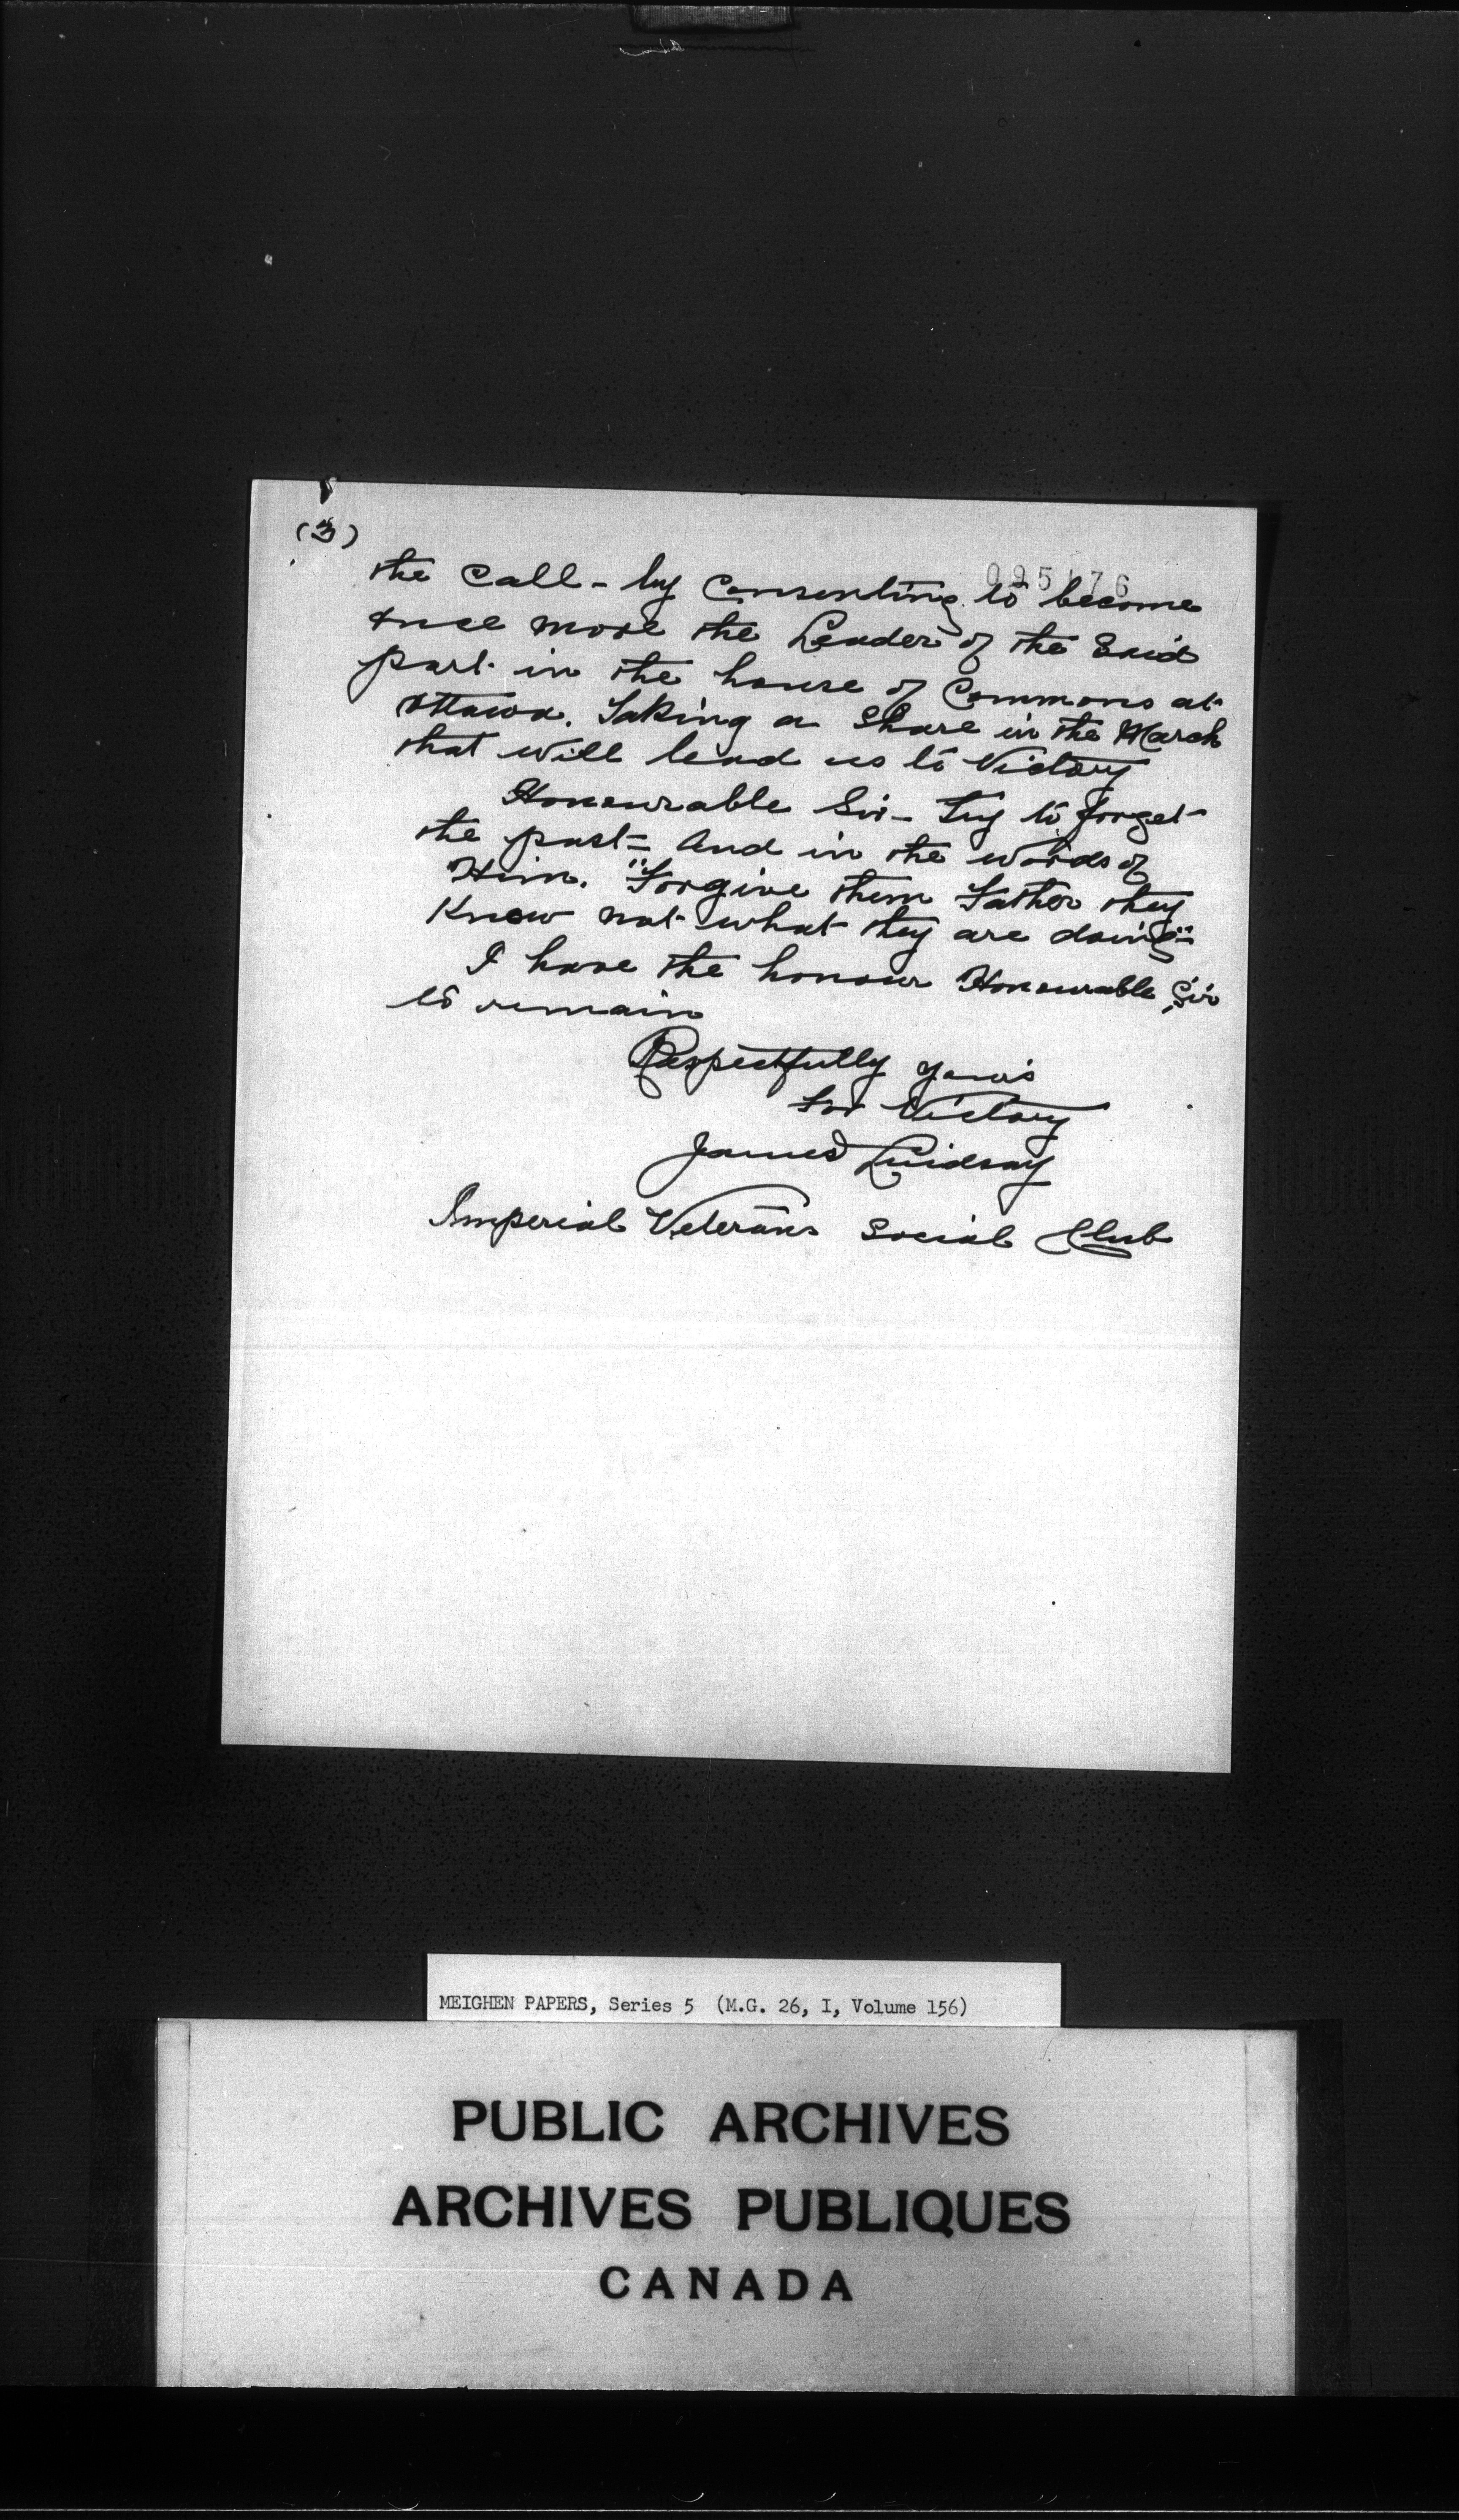 (3)
the Call - by Consenting to become
once more the Leader of the Said
part in the house of Commons at
Ottawa. Taking a Share in the March
that will lead us to Victory
Honourable Sir - Try to forget
the past = And in the words of
Him. "Forgive them Father they
Know not what they are doing"=
I have the honour Honourable Sir
to remain
Respectfully yours
for Victory
James Lindsay
Imperial Veterans Social Club
MEIGHEN PAPERS, Series 5 (M.G. 26, I, Volume 156)
PUBLIC ARCHIVES
ARCHIVES PUBLIQUES
CANADA